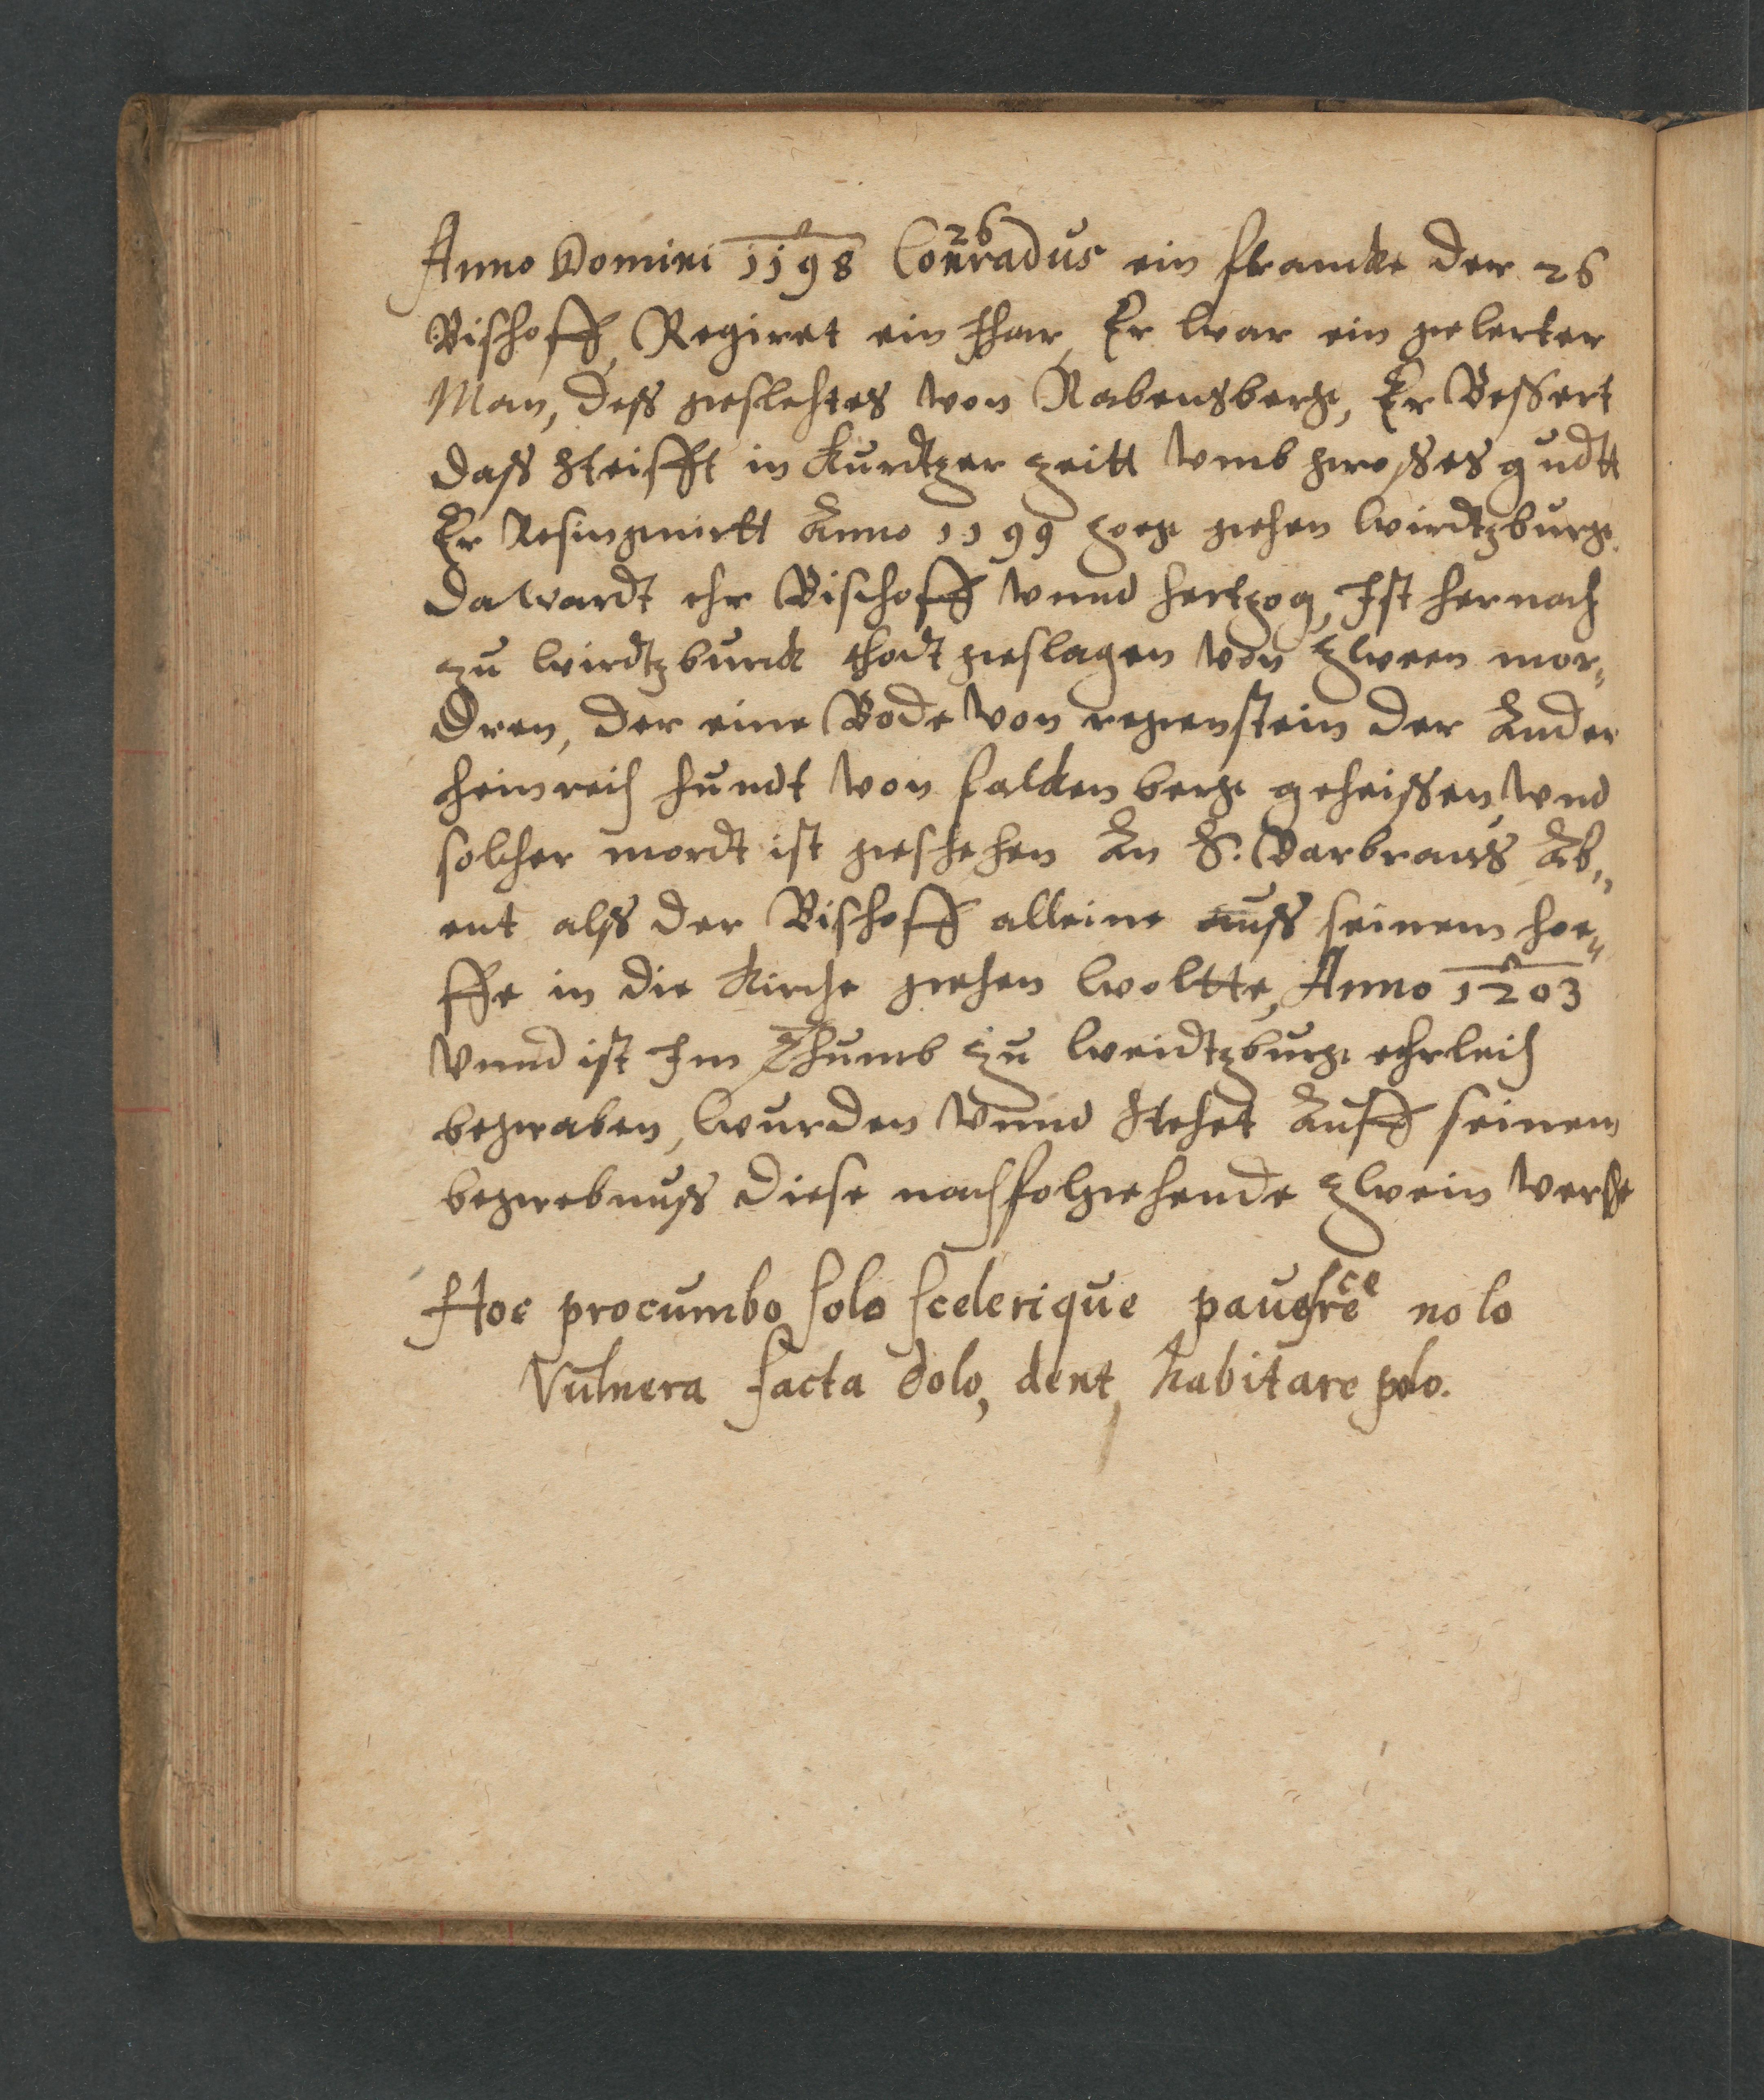 26
Anno Domini 1198 Conradus ein francke der 26
Bischoff, Regiret ein thar, Er war ein gelerter
Man, deß geslehtes von Rabensberge, Er Bessert
daß Steifft in kurdtzer zeitt vmb grosses gudtt
Er Resingnirtt Anno 1199 zoge gehen wirdtzburge.
Da wardt ehr Bischoff vnnd hertzog, Ist hernach
zu wirdtzburck thodt geslagen von zween mor,,
dren, der eine Bode von regenstein der Ander
heinreich hundt von falckenberge geheissen, vnd
solcher mordt ist geschehen An S. Barbraiis Ab,,
ent alß der Bischoff alleine auß seinem hoe,,
ffe in die Kirche gehen woltte, Anno 1203
vnnd ist Im Thumb zu weidtzburge ehrleich
begraben, wurden vnnd stehet Auff seinem
begrebnuß diese nachfolgehende zwein verse
Hoc procumbo solo scelerique pauesre sce nolo
Vulnera facta dolo, dent, habitare polo.